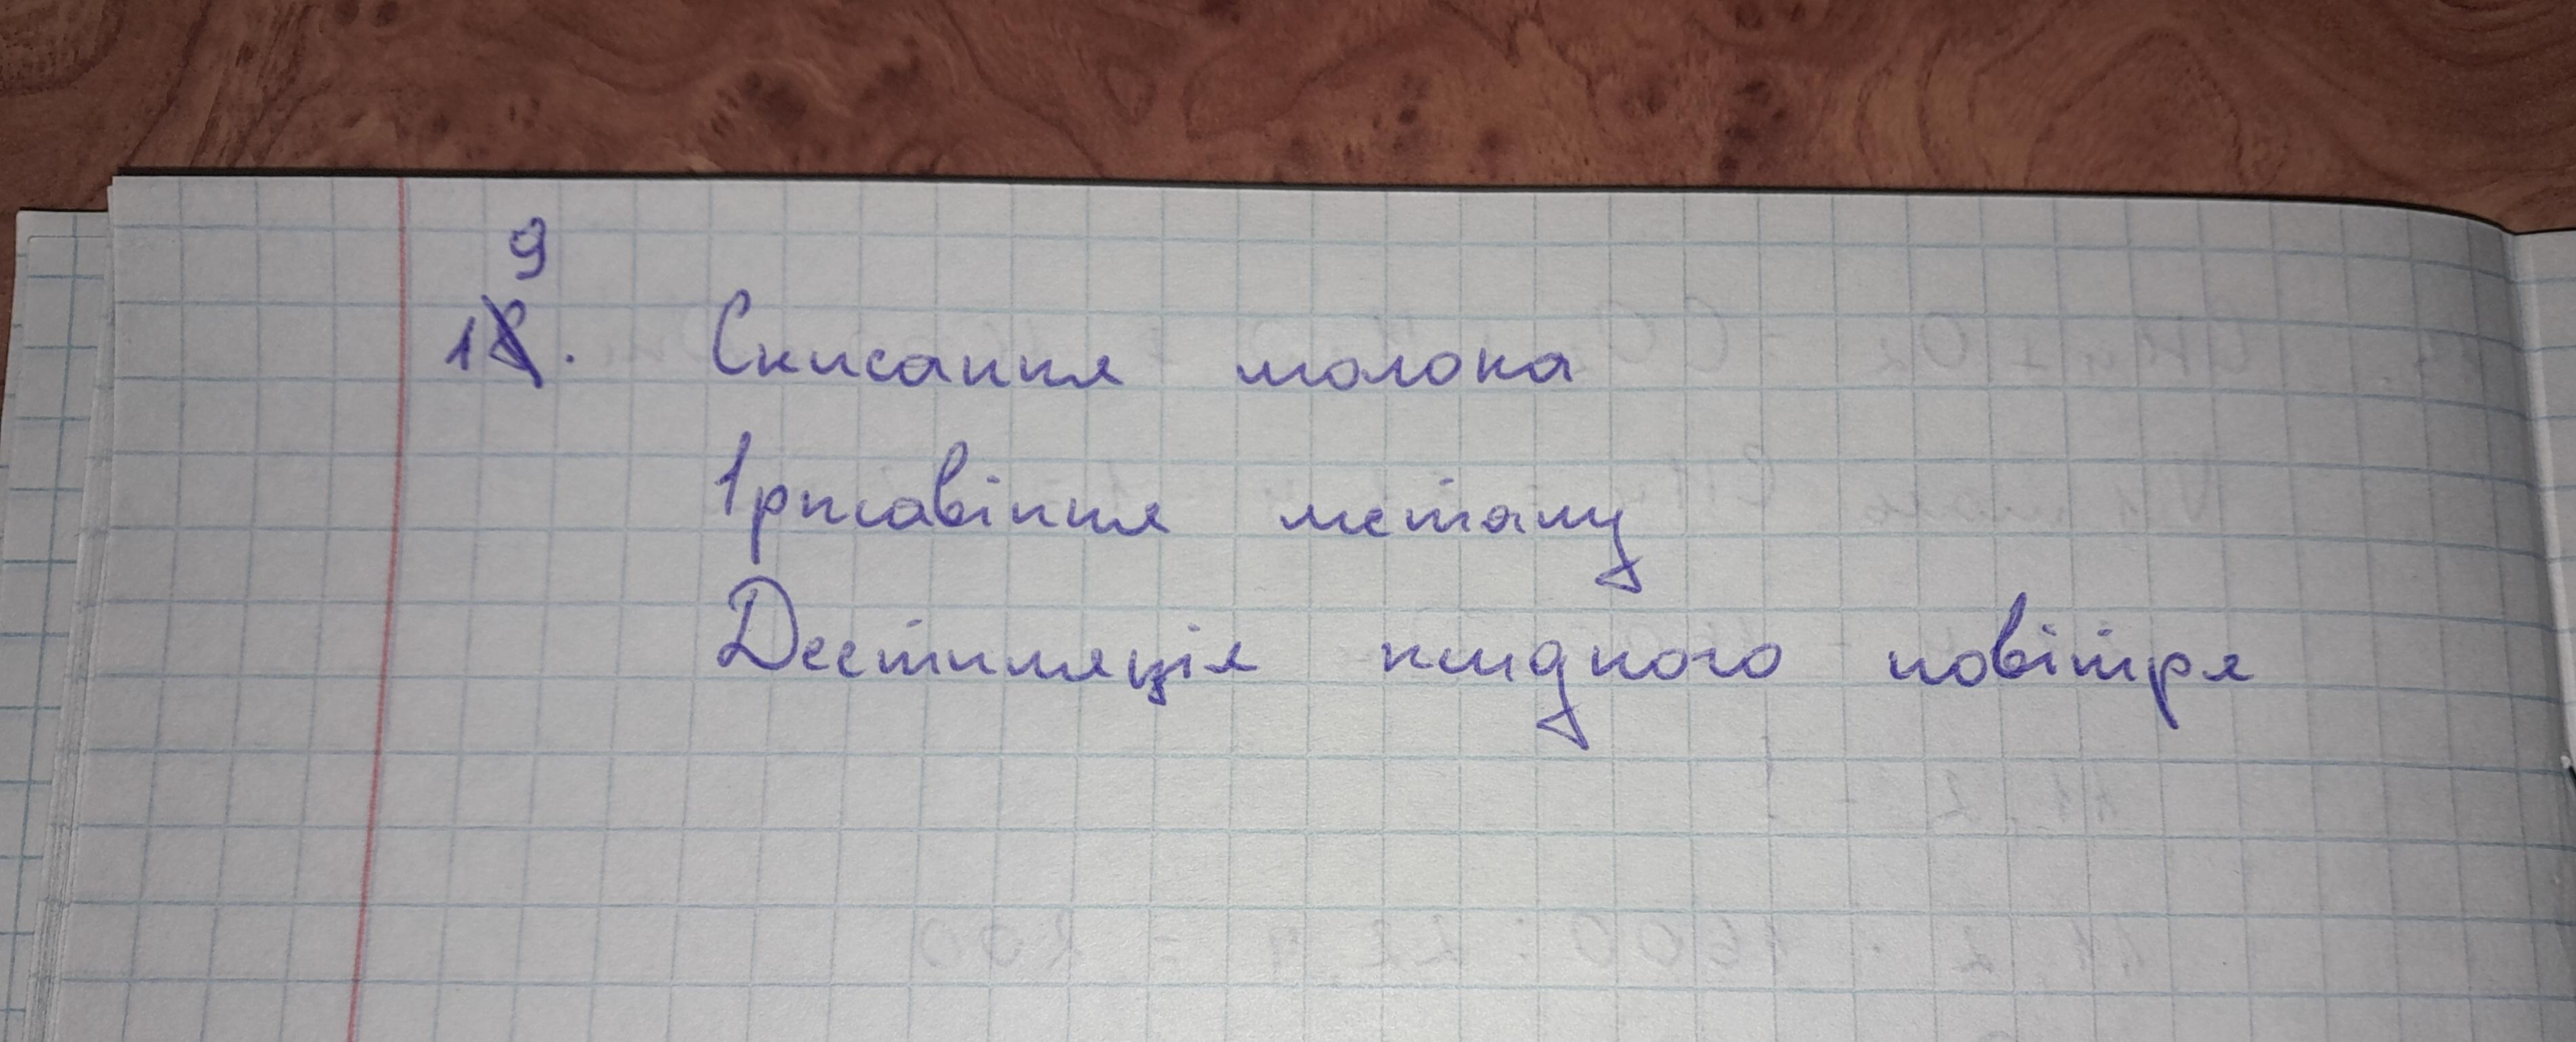 19. Скисання молока
Іржавіння металу
Дестиляція рідкого повітря